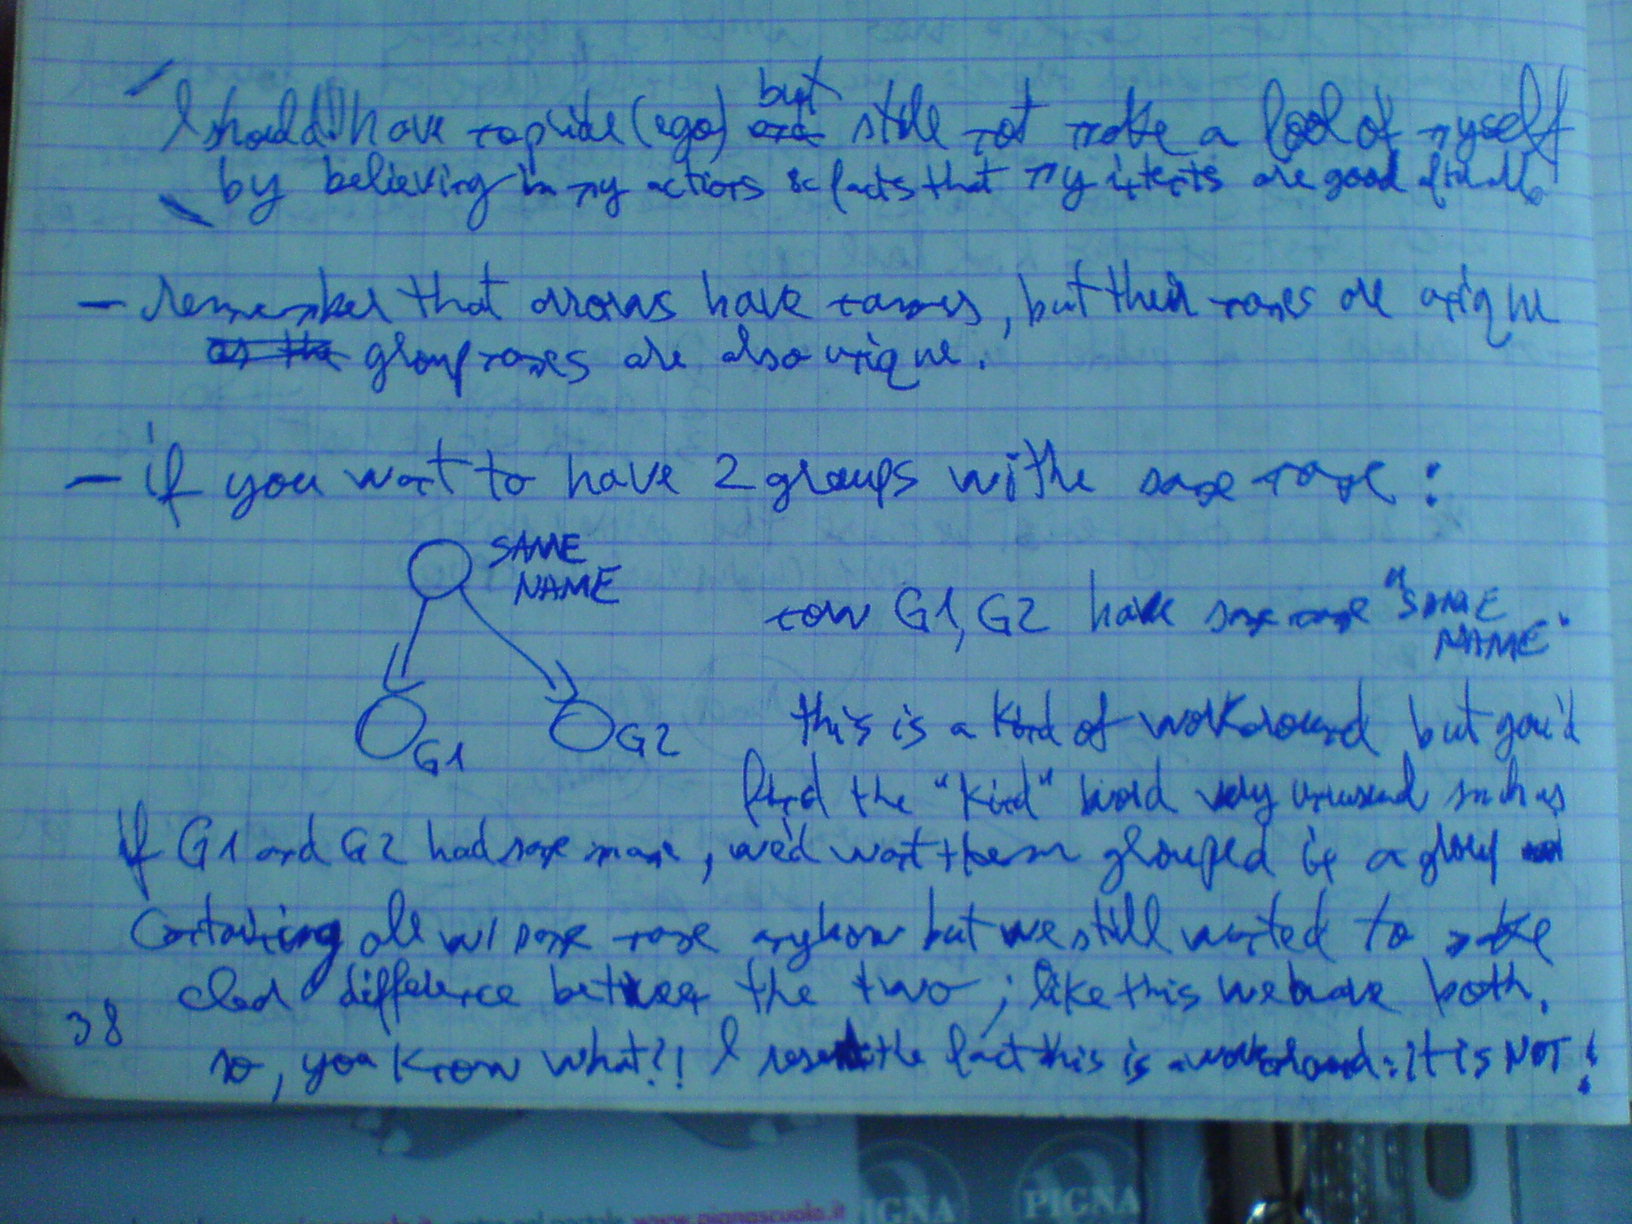 I should have no pride (ego) but still not make a fool of myself
by believing in my actions & facts that my intents are good after all.
— remember that arrows have names, but their names are unique
as the group names are also unique.
— if you want to have 2 groups with the same name :
SAME
NAME
G1
G2
now G1, G2 have same name "SAME
NAME".
this is a kind of workaround but you'd
find the "kind" word very unusual such as
if G1 and G2 had same name, we'd want them grouped in a group
containing all w/ same name anyhow but we still wanted to make
clear difference between the two ; like this we have both.
38
so, you know what?! I resent the fact this is a workaround : it is NOT !
www.pignascuola.it
PIGNA
PIGNA